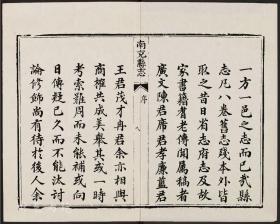 一方一邑之志而已哉縣
志凡八卷舊志殘本外皆
取之昔日省志府志及故
家書籍耆老傳聞屬稿者
廣文陳君席君孝廉藍君
南充縣志
序
八
王君茂才冉君余亦相與
商榷共成美舉其或一時
考索雖周而未能補或向
日傳疑已久而不能汰討
論修飾尚有待於後人余